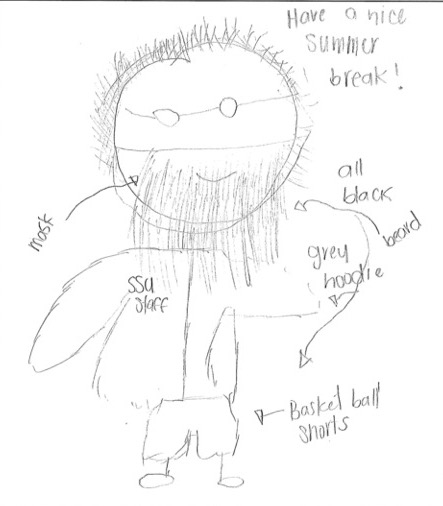 Have a nice
summer
break!
all
black
mask
beard
grey
hoodie
SSU
staff
Basket ball
shorts